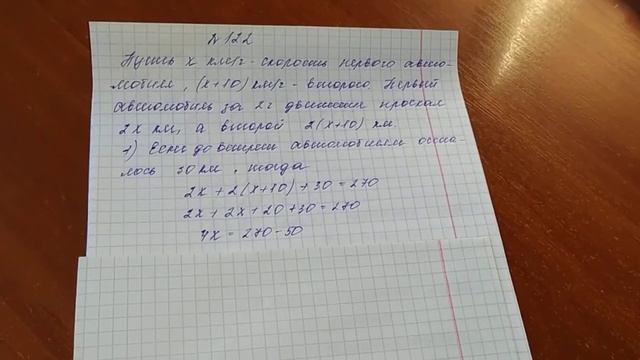 № 122
Пусть x км/г - скорость первого авто-
мобиля, (x+10) км/г - второго. Первый
автомобиль за 2г движения проехал
2x км, а второй 2(x+10) км.
1) Если до встречи автомобилям оста-
лось 30 км, тогда
2x + 2(x+10) + 30 = 270
2x + 2x + 20 + 30 = 270
4x = 270 - 50